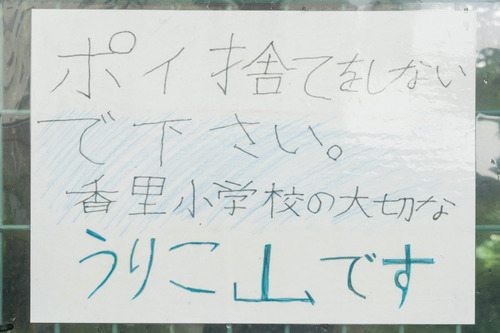 ポイ捨てをしない
で下さい。
香里小学校の大切な
うりこ山です